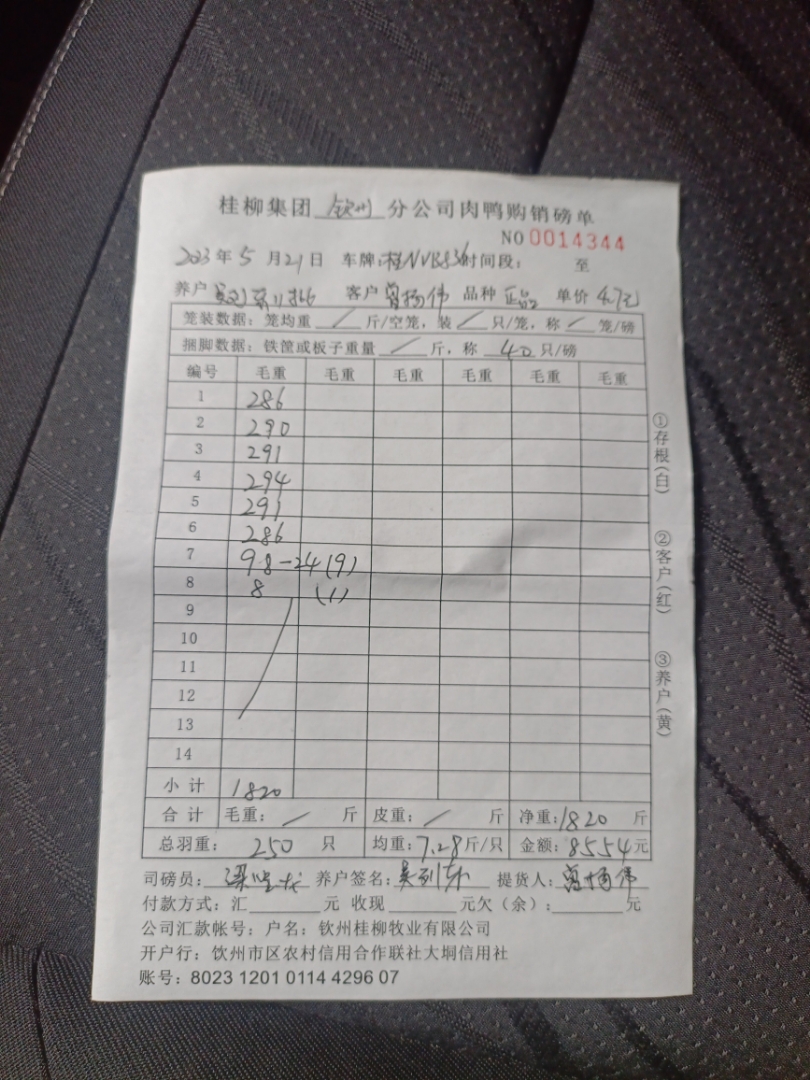 桂柳集团 钦州 分公司肉鸭购销磅单
NO 0014344
2023年 5 月 21 日 车牌:桂NVB836 时间段: 至
养户 客户 曾杨伟 品种 正品 单价 4.7元
笼装数据:笼均重 / 斤/空笼,装 / 只/笼,称 / 笼/磅
捆脚数据:铁筐或板子重量 / 斤,称 40 只/磅
编号 毛重 毛重 毛重 毛重 毛重 毛重
1 286
2 290
3 291
4 294
5 291
6 286
7 98-24(9)
8 8 (1)
9
10
11
12
13
14
小计 1820
合计 毛重: / 斤 皮重: / 斤 净重:1820 斤
总羽重: 250 只 均重:7.28斤/只 金额:8554元
司磅员: 养户签名: 提货人:曾杨伟
付款方式:汇 元 收现 元欠(余): 元
公司汇款帐号:户名:钦州桂柳牧业有限公司
开户行:钦州市区农村信用合作联社大垌信用社
账号:8023 1201 0114 4296 07
①存根(白)
②客户(红)
③养户(黄)